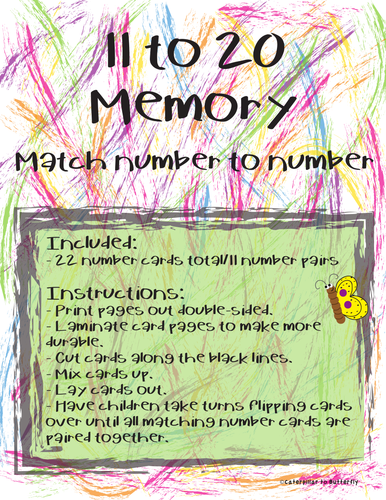 11 to 20
Memory
Match number to number
Included:
- 22 number cards total/11 number pairs
Instructions:
- Print pages out double-sided.
- Laminate card pages to make more
durable.
- Cut cards along the black lines.
- Mix cards up.
- Lay cards out.
- Have children take turns flipping cards
over until all matching number cards are
paired together.
©Caterpillar to Butterfly